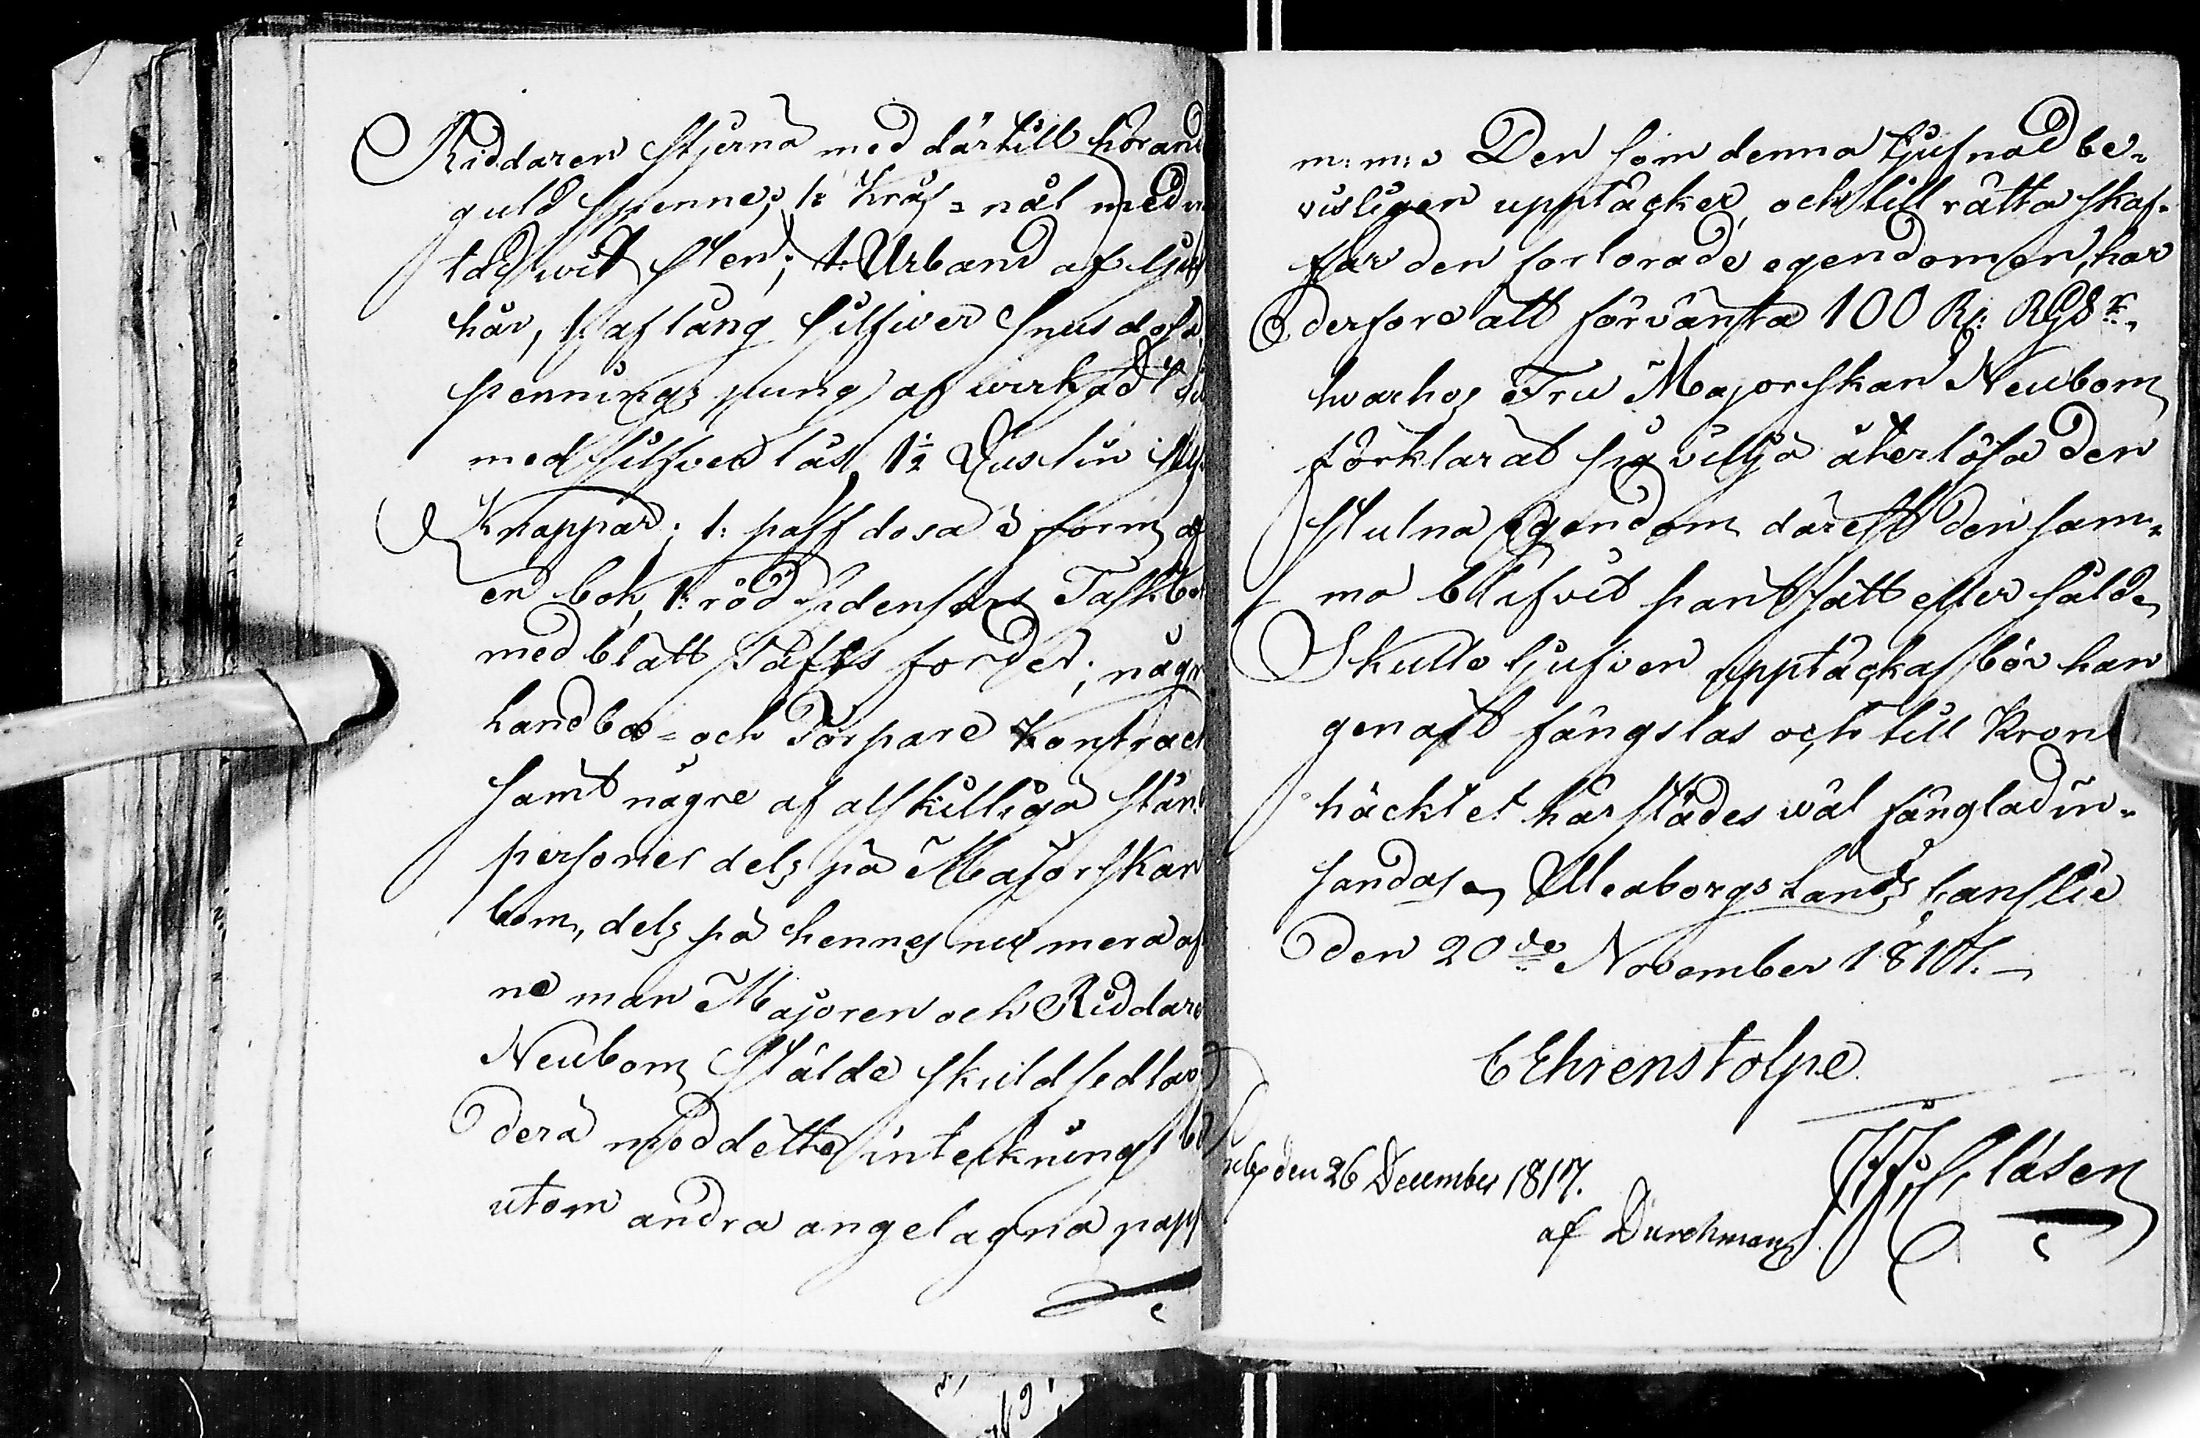 Riddaren Stjerna med därtill hörand
guld spenne; 1: Krås=nål med
tad wit sten; 1: Urband af ljust
hår, 1: aflång silfwer snusdosa
pennings pung af wirkad
med silfver lås, 1½ Dussin
Knappar; 1: paff dosa i form af
en bok, 1: röd sidensars Taskbok
med blått Tafts foder; någr
landbo= och Torpare Kontract
samt någre af åtskilliga stån
personer dels på Majorskan
bom, dels på hennes nu mera af
ne man Majoren och Riddare
Neubom stälde skuldsedlar
dera med dette intecknings be
utom andra angelägna papp
m: m: Den som denna tjufnad be=
visligen upptäcker, och till rätta skaf=
far den förlorade egendomen, har
derföre att förvänta 100 R: RGdr.,
hvarhos Fru Majorskan Neubom
förklarat sig vilja återlösa den
stulna egendom därest den sam=
ma blifvit pantsatt eller såld.
Skulle tjufven upptäckas bör han
genast fängslas och till Krono
häcktet härstädes wäl fänglad in=
sändas. Uleaborgs Lands Canslie
den 20de November 1817.
C Ehrenstolpe
J J Clásen
den 26 December 1817.
af Durchman